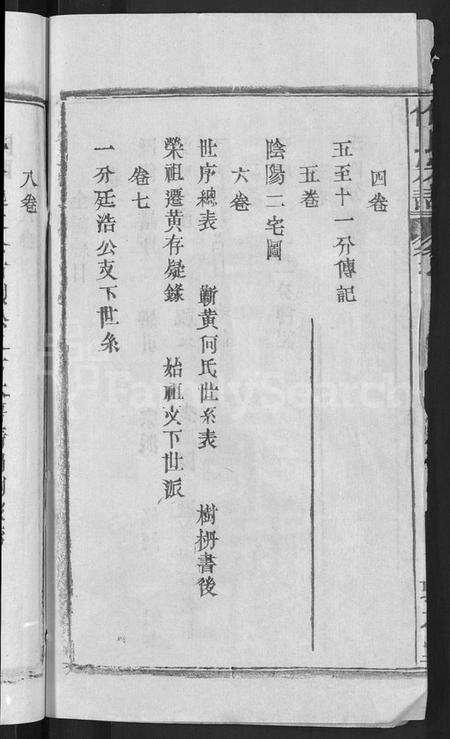 四卷
五至十一分傳記
五卷
陰陽二宅圖
六卷
世序總表 蘄黃何氏世系表 樹枬書後
榮祖遷黃存疑錄 始祖攴下世派
卷七
一分廷浩公攴下世系
八卷
FamilySearch